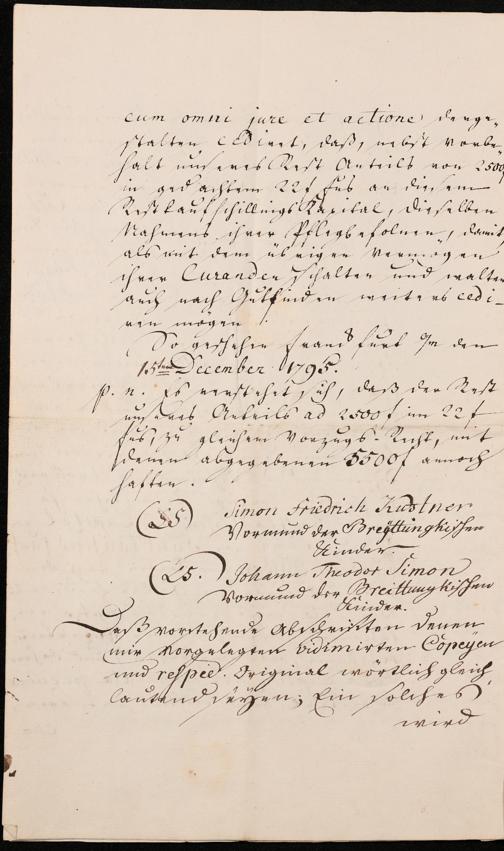 cum omni jure et actione derge„
stalten cediret, daß, nebst vorbe„
halt unseres Rest Anteils von 2500f
in gedachtem 22f Fus an diesem
Restkaufschillings Kapital, dieselben
Nahmens ihrer Pflegbefolnen, damit
als mit dem übrigen Vermögen
ihrer Curanden schalten und walten
auch nach Gutfinden weiters cedi_
ren mögen
So geschehen Frankfurt a/m den
15ten December 1795.
p. n. Es verstehet sich, daß der Rest
unseres Anteils ad 2500f im 22f
Fus, zu gleichem Vorzugs-Recht, mit
denen abgegebenen 5500f annoch
haften.
(LS) Simon Friedrich Küstner
Vormund der Breyttinghischen
Kinder
(LS.) Johann Theodor Simon
Vormund der Breittinghischen
Kinder.
Daß vorstehende Abschriften denen
mir vorgelegten vidimirten Copeyen
und respée. Original wörtlich gleich
lautend seyen; Ein solches
wird